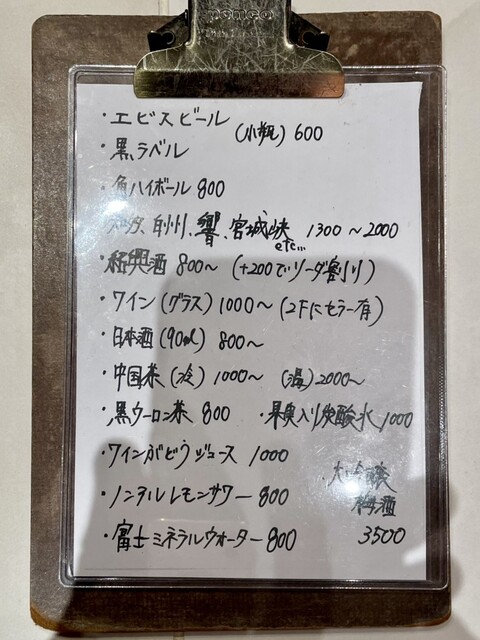 ・エビスビール
(小瓶) 600
・黒ラベル
・角ハイボール 800
白州、響、宮城峡 1300〜2000
etc...
・紹興酒 800〜 (+200でソーダ割り)
・ワイン(グラス) 1000〜 (2Fにセラー有)
・日本酒(90ml) 800〜
・中国茶(冷) 1000〜 (湯)2000〜
・黒ウーロン茶 800 ・果実入り炭酸水 1000
・ワインぶどうジュース 1000
・ノンアルレモンサワー 800
・大吟醸
梅酒
3500
・富士ミネラルウォーター 800